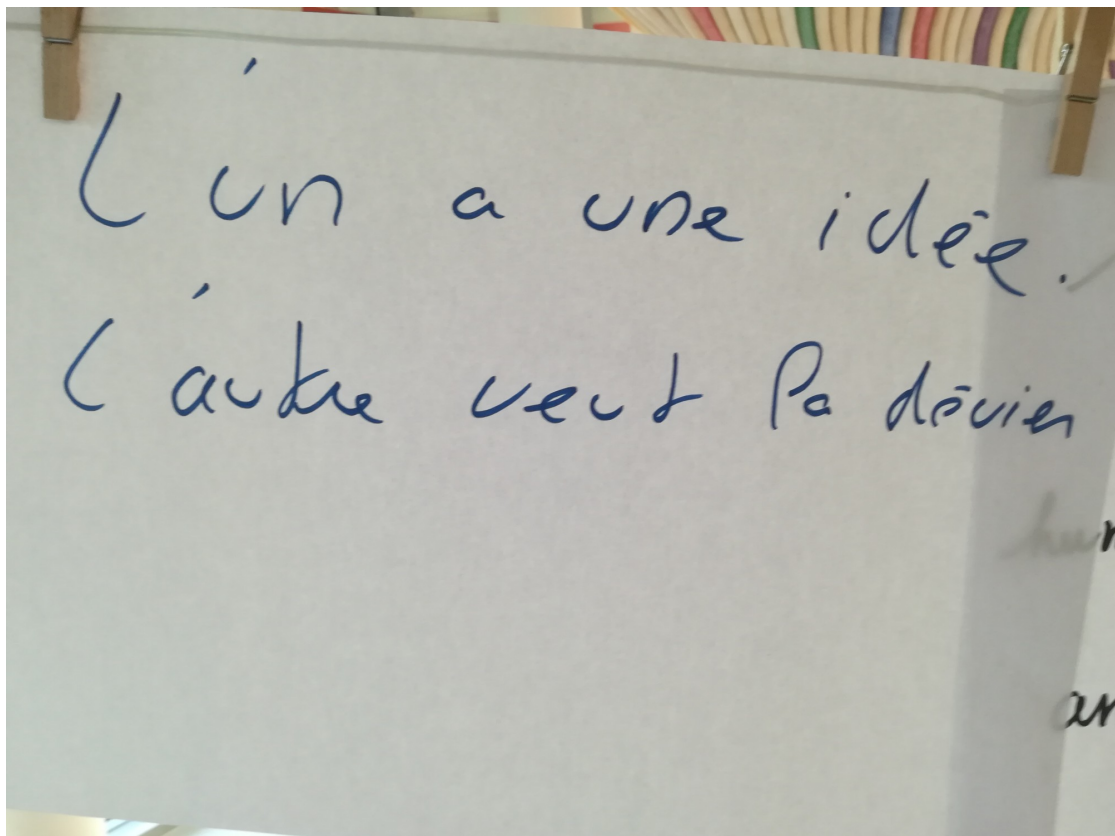 L'un a une idée.
L'autre veut la dévier
hun
an